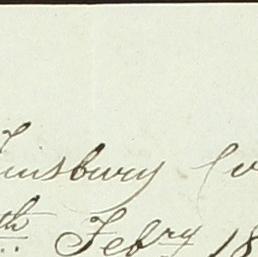 Finsbury Co
th Febry 18